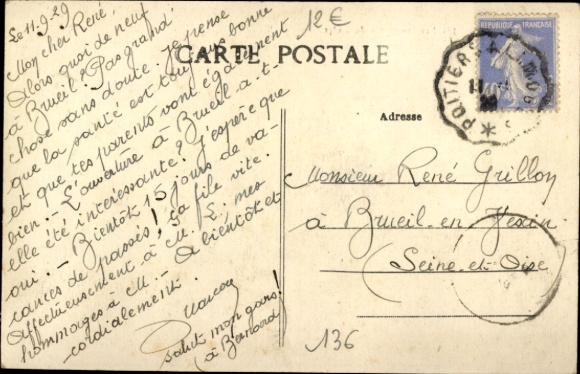 Le 11.9.29
12 €
Mon cher René,
Alors quoi de neuf
à Brueil? Pas grand'
chose sans doute. Je pense
que la santé est toujours bonne
et que tes parents vont également
bien. - L'ouverture à Brueil a-t-
elle été intéressante? J'espère que
oui. - Bientôt 15 jours de va-
cances de passés! ça file vite.
Affectueusement à M. L., mes
hommages à M. - A bientôt et
cordialement.
salut mon gars!
à Bernard
CARTE POSTALE
Adresse
Monsieur René Grillon
à Brueil-en-Vexin
(Seine-et-Oise
136
REPUBLIQUE FRANÇAISE
POITIERS